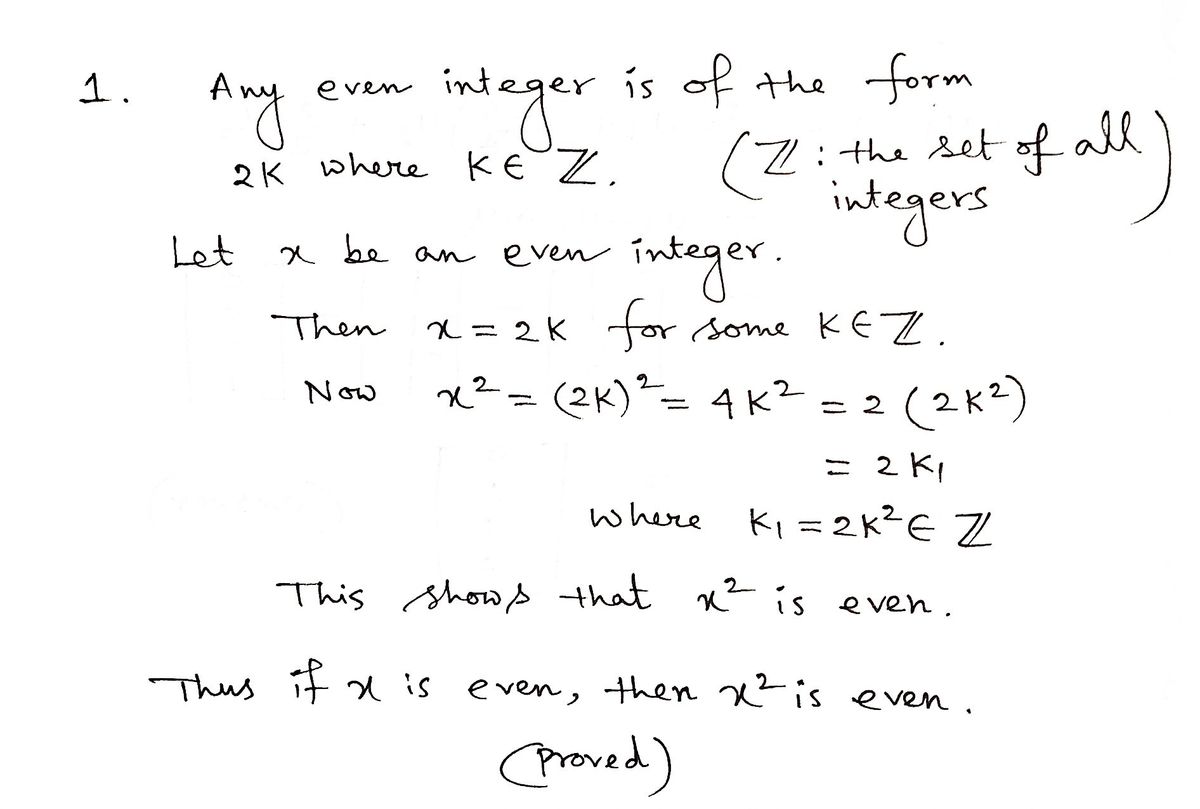 1. Any even integer is of the form
2K where K ∈ ℤ. (ℤ : the set of all
integers)
Let x be an even integer.
Then x = 2K for some K ∈ ℤ.
Now x² = (2K)² = 4K² = 2(2K²)
= 2K₁
where K₁ = 2K² ∈ ℤ
This shows that x² is even.
Thus if x is even, then x² is even.
(proved)